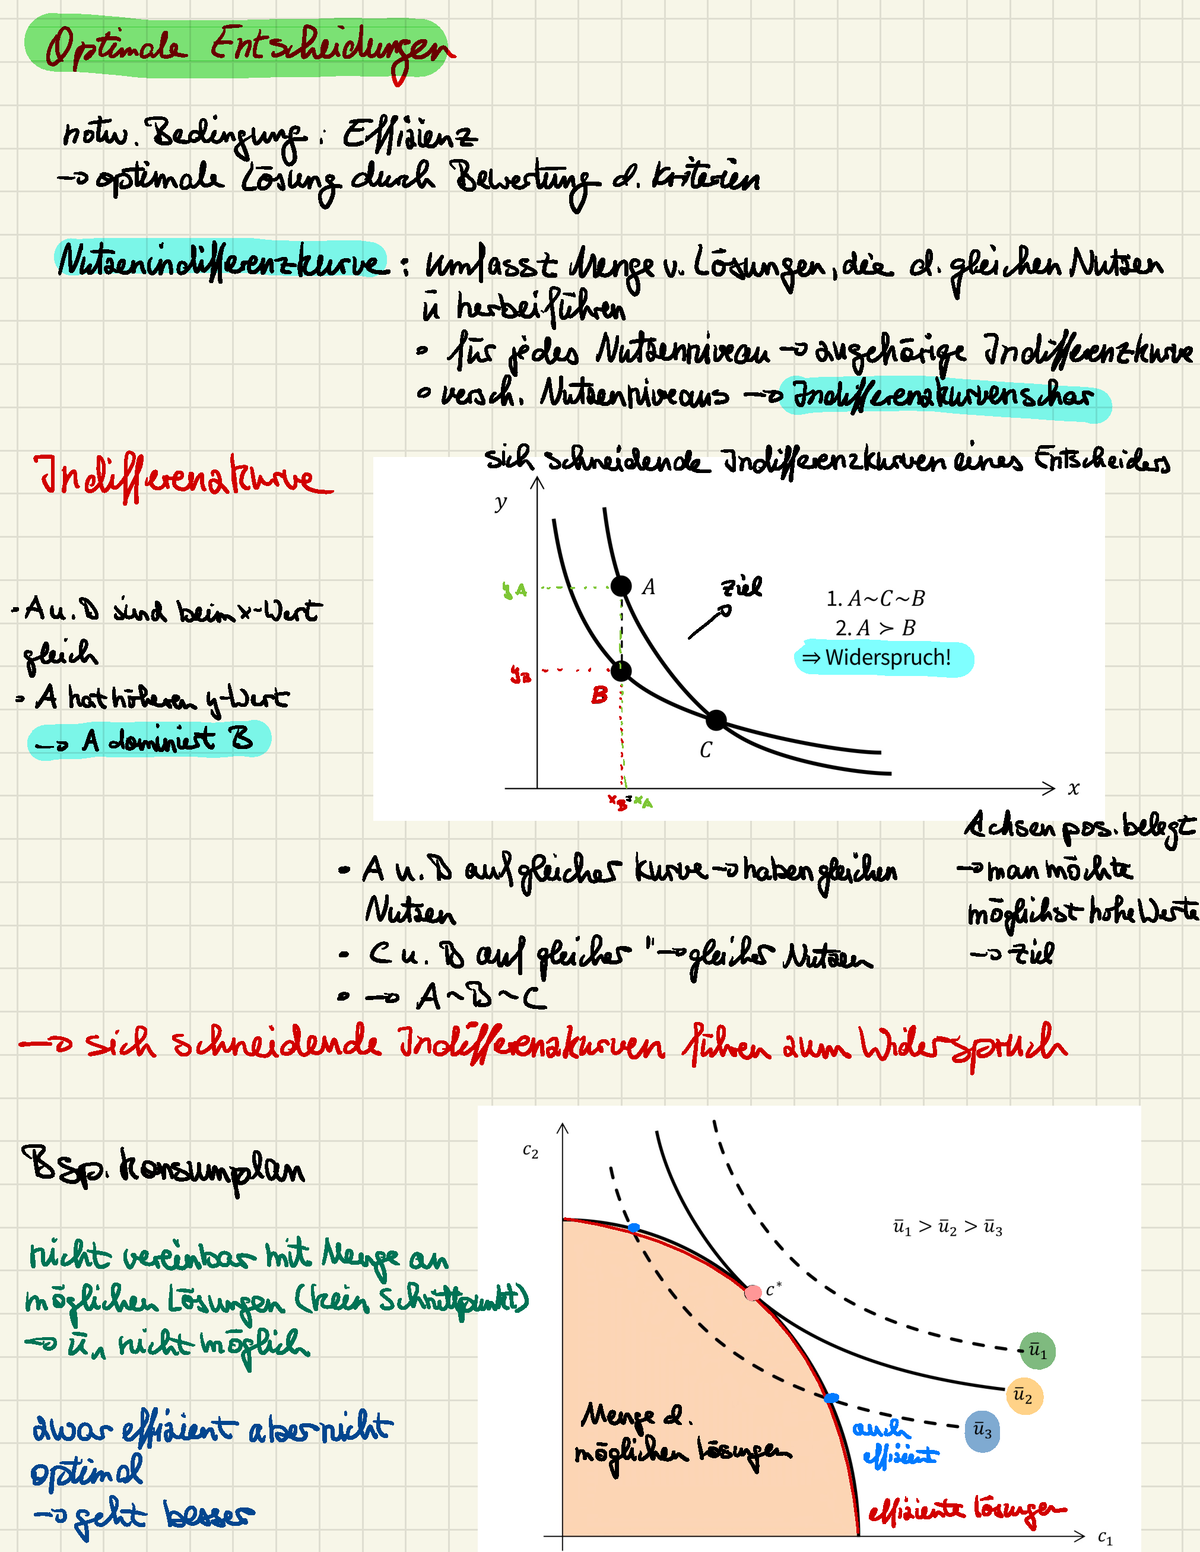 Optimale Entscheidungen
notw. Bedingung: Effizienz
→ optimale Lösung durch Bewertung d. Kriterien
Nutzenindifferenzkurve: umfasst Menge v. Lösungen, die d. gleichen Nutzen
ū herbeiführen
• für jedes Nutzenniveau → zugehörige Indifferenzkurve
• versch. Nutzenniveaus → Indifferenzkurvenschar
Indifferenzkurve
sich schneidende Indifferenzkurven eines Entscheiders
y
yA
A
Ziel
1. A~C~B
2. A ≻ B
⇒ Widerspruch!
yB
B
C
x
xB = xA
- A u. B sind beim x-Wert
gleich
- A hat höheren y-Wert
→ A dominiert B
Achsen pos. belegt
→ man möchte
möglichst hohe Werte
→ Ziel
• A u. B auf gleicher Kurve → haben gleichen
Nutzen
• C u. B auf gleicher " → gleicher Nutzen
• → A~B~C
→ sich schneidende Indifferenzkurven führen zum Widerspruch
Bsp. Konsumplan
nicht vereinbar mit Menge an
möglichen Lösungen (kein Schnittpunkt)
→ ū₁ nicht möglich
zwar effizient aber nicht
optimal
→ geht besser
c₂
ū₁ > ū₂ > ū₃
c*
ū₁
ū₂
ū₃
Menge d.
möglichen Lösungen
auch
effizient
effiziente Lösungen
c₁